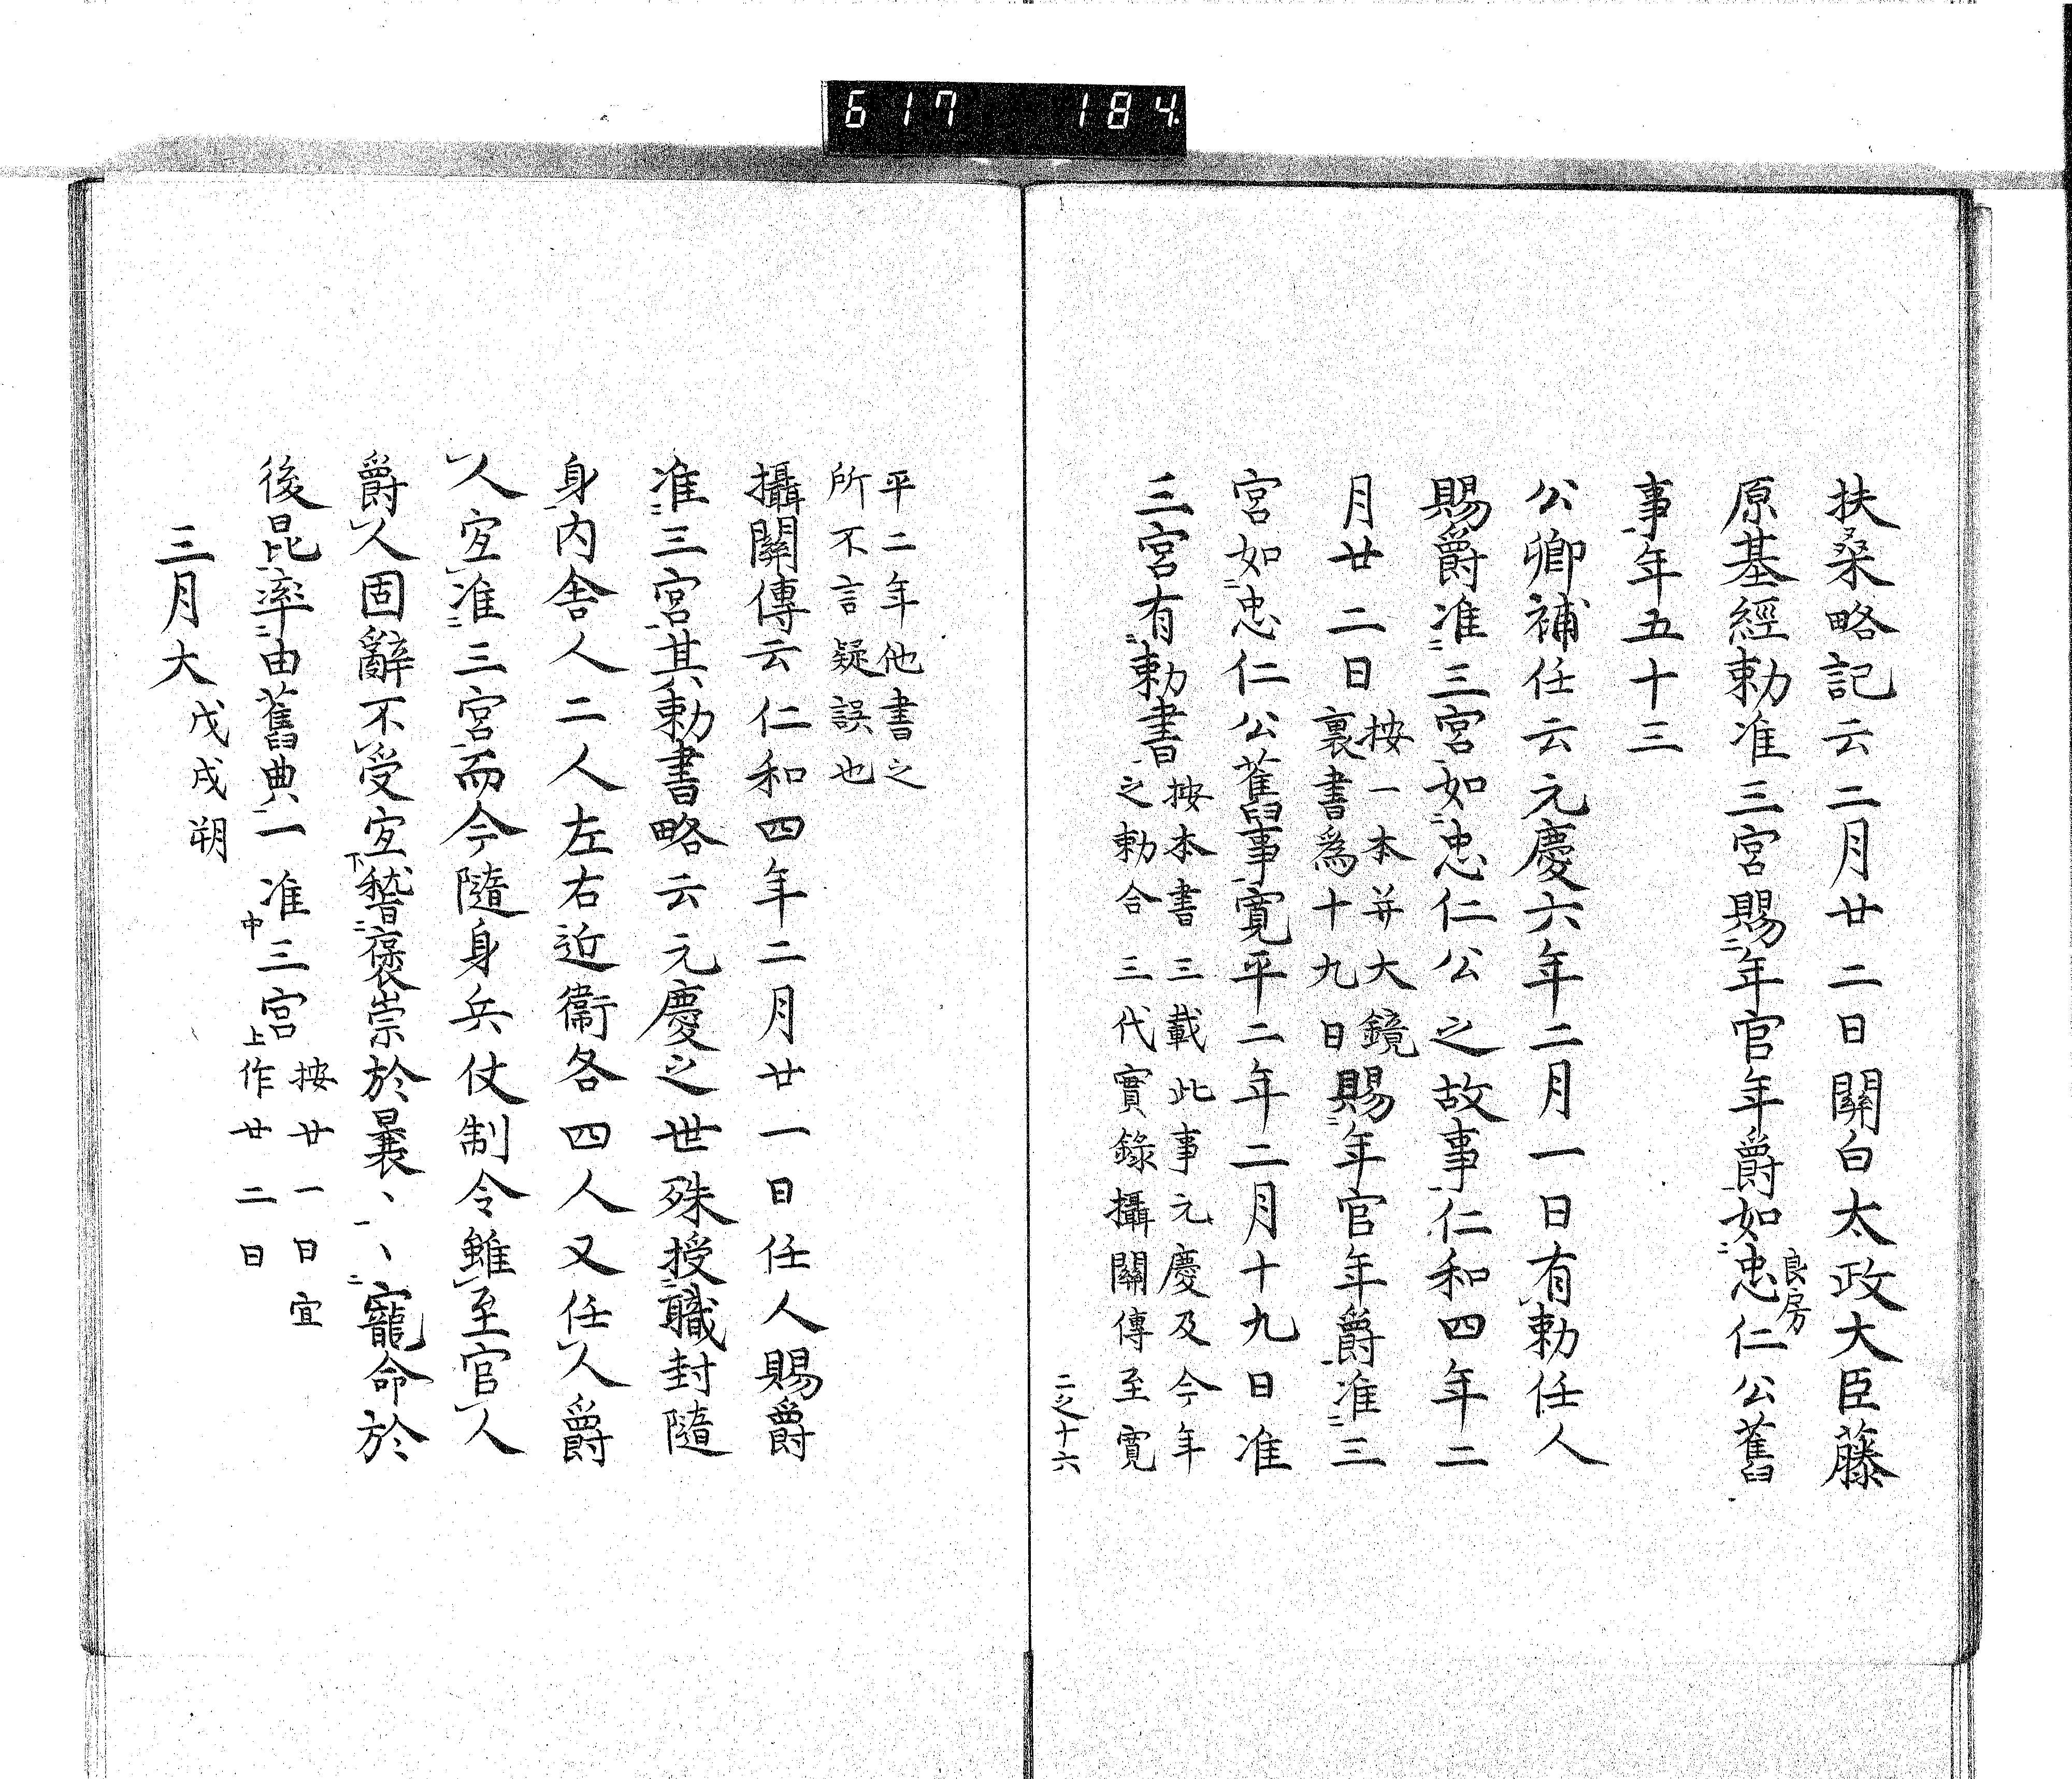 617 184
扶桑略記云二月廿二日關白太政大臣藤
原基經勅准三宮賜二年官年爵一如二忠仁公舊
良房
事一年五十三
公卿補任云元慶六年二月一日有レ勅任人
賜爵准二三宮一如二忠仁公之故事一仁和四年二
月廿二日
按一本并大鏡
裏書爲十九日
賜二年官年爵一准二三
宮一如二忠仁公舊事一寛平二年二月十九日准
三宮有二勅書一
按本書三載此事元慶及今年
之勅合三代實錄攝關傳至寛
二之十六
平二年他書之
所不言疑誤也
攝關傳云仁和四年二月廿一日任人賜爵
准二三宮一其勅書略云元慶之世殊授二職封隨
身内舎人二人左右近衞各四人又任レ人爵
レ人宜レ准二三宮一而今隨身兵仗制令雖レ至官レ人
爵レ人固辭不レ受宜下稽二褒崇於曩丶一丶二寵命於
後昆一率二由舊典一一准中三宮上
按廿一日宜
作廿二日
三月大
戊戌朔